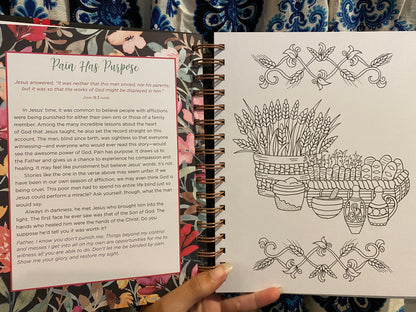 Pain Has Purpose
Jesus answered, "It was neither that this man sinned, nor his parents;
but it was so that the works of God might be displayed in him."
John 9:3 NASB
In Jesus' time, it was common to believe people with afflictions
were being punished for either their own sins or those of a family
member. Among the many incredible lessons about the heart
of God that Jesus taught, he also set the record straight on this
account. The man, blind since birth, was sightless so that everyone
witnessing—and everyone who would ever read this story—would
see the awesome power of God. Pain has purpose. It draws us to
the Father and gives us a chance to experience his compassion and
healing. It may feel like punishment but believe Jesus' words: It's not.
Stories like the one in the verse above may seem unfair. If we
have been in our own season of affliction, we may even think God is
being cruel. This poor man had to spend his entire life blind just so
Jesus could perform a miracle? Ask yourself, though, what the man
would say.
Always in darkness, he met Jesus who brought him into the
light. The first face he ever saw was that of the Son of God. The
hands who healed him were the hands of the Christ. Do you
suppose he'd tell you it was worth it?
Father, I know you don't punish me. Things beyond my control
and messes I get into all on my own are opportunities for me to
witness all you are able to do. Don't let me be blinded by pain.
Show me your glory and restore my sight.